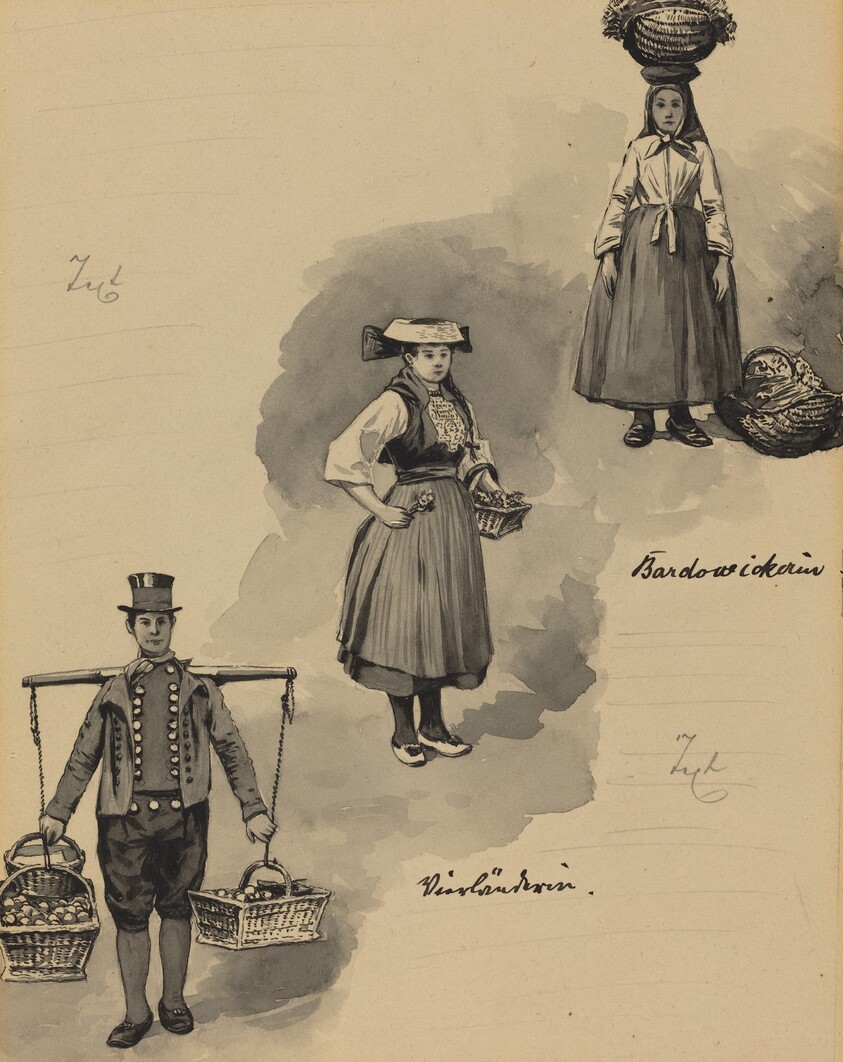 Text
Bardowickerin.
Text
Vierländerin.